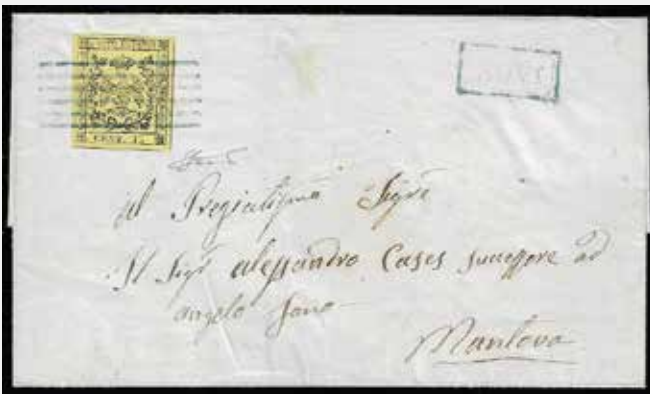 CENT.
al Pregiatissimo Sigre
Il Sigr alessandro Cases successore ad
angelo
Mantova